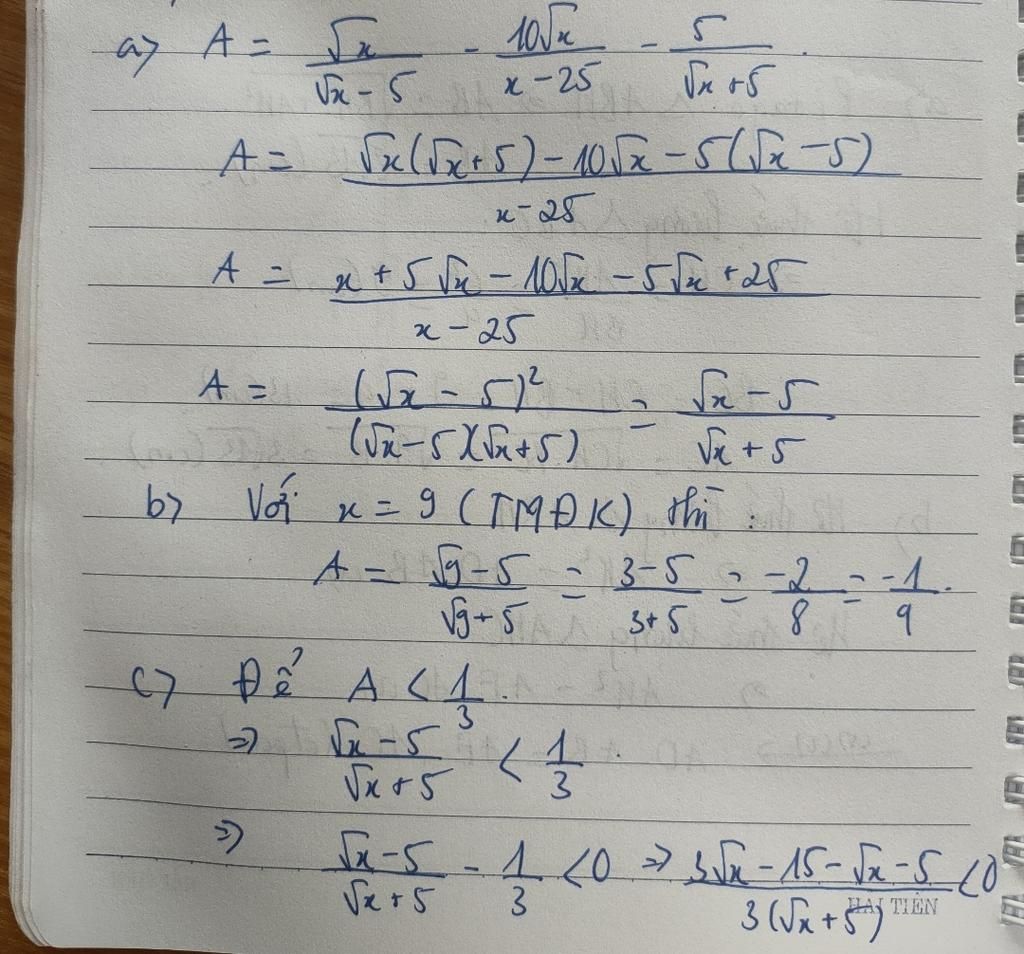 a) A = √x/(√x - 5) - 10√x/(x - 25) - 5/(√x + 5).
A = (√x(√x + 5) - 10√x - 5(√x - 5))/(x - 25)
A = (x + 5√x - 10√x - 5√x + 25)/(x - 25)
A = (√x - 5)²/((√x - 5)(√x + 5)) = (√x - 5)/(√x + 5)
b) Với x = 9 (TMĐK) thì :
A = (√9 - 5)/(√9 + 5) = (3 - 5)/(3 + 5) = -2/8 = -1/9.
c) Để A < 1/3.
⇒ (√x - 5)/(√x + 5) < 1/3.
⇒ (√x - 5)/(√x + 5) - 1/3 < 0 ⇒ (3√x - 15 - √x - 5)/(3(√x + 5)) < 0
HẢI TIẾN